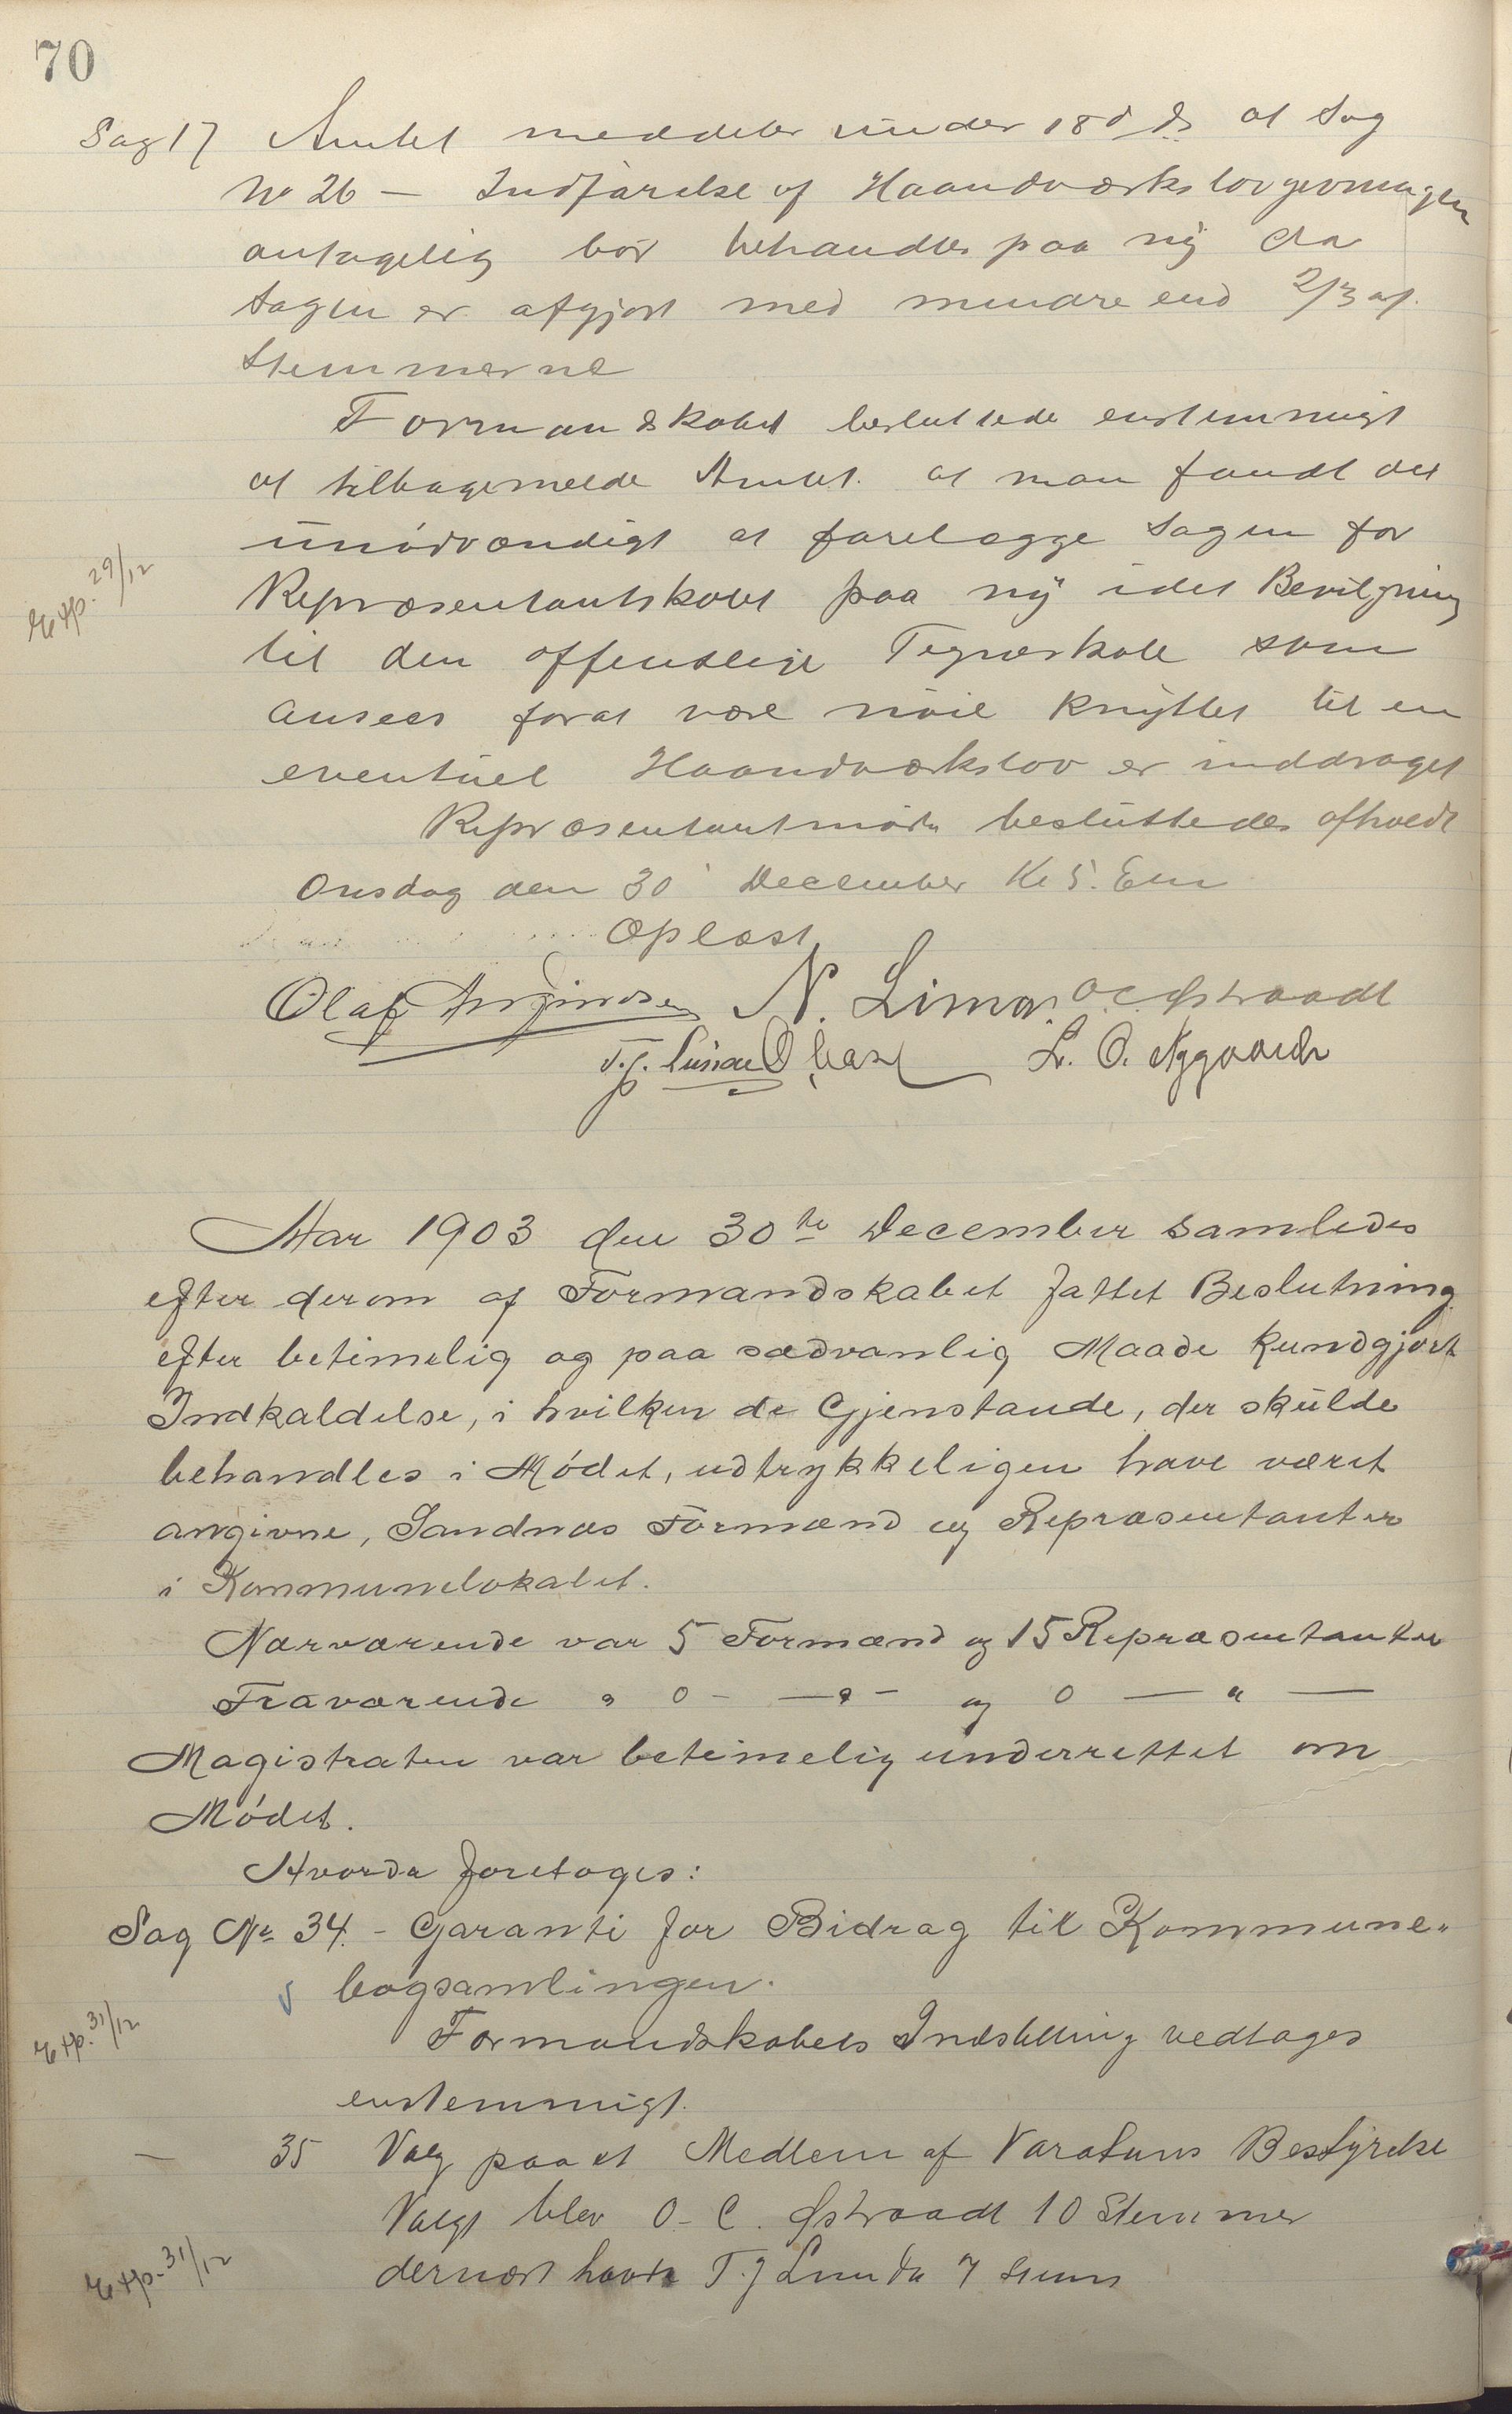 70
Sag 17 Amtet meddeler under 18 d ds at Sag
No 26 - Indførelse af Haandværkslovgivningen
antagelig bør behandles paa ny da
Sagen er afgjort med mindre end 2/3 af
Stemmerne
Formandskabet besluttede enstemmigt
at tilbagemelde Amtet at man fandt det
unødvendigt at forelægge Sagen for
Repræsentantskabet paa ny idet Bevilgning
Exp. 29/12
til den offentlige Tegneskole som
ansees forat være nöie knyttet til en
eventuel Haandværkslov er inddraget
Repræsentantmøde besluttedes afholdt
Onsdag den 30 December Kl 5. Em
Oplæst
Olaf N. Lima O C Østraadt
T. J. Lunde L. O. Nygaard
Aar 1903 den 30te December samledes
efter derom af Formandskabet fattet Beslutning
efter betimelig og paa sædvanlig Maade kundgjort
Indkaldelse, i hvilken de Gjenstande, der skulde
behandles i Mødet, udtrykkeligen have været
angivne, Sandnæs Formænd og Repræsentanter
i Kommunelokalet.
Nærværende var 5 Formænd og 15 Repræsentanter
Fraværende " 0 - — " - og 0 — " —
Magistraten var betimelig underrettet om
Mødet.
Hvorda foretoges:
Sag No 34. - Garanti for Bidrag til Kommune-
bogsamlingen.
Exp. 31/12
Formandskabets Indstilling vedtages
enstemmigt.
— 35 Valg paa et Medlem af Varatuns Bestyrelse
Valgt blev O. C. Østraadt 10 Stemmer
Exp. 31/12
dernæst havde T. J Lunde 7 Stemr